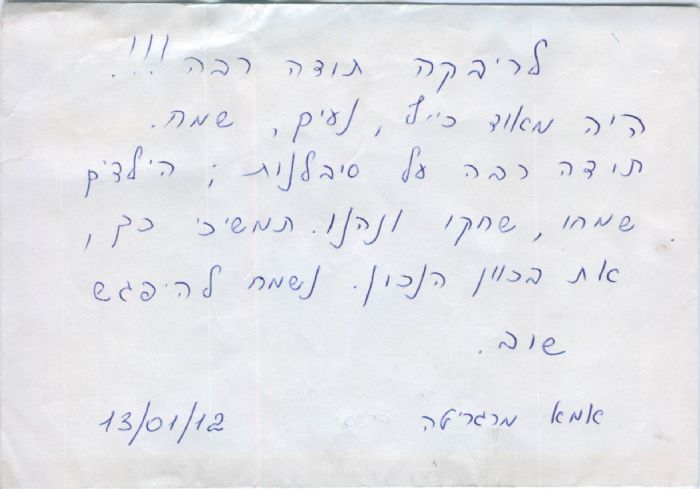 לריבקה תודה רבה!!!
היה מאוד כייף, נעים, שמח.
תודה רבה על סיבלנות; הילדים
שמחו, שחקו ונהנו. תמשיכי כך,
את בכוון הנכון. נשמח להיפגש
שוב.
אמא מרגריטה 13/01/12